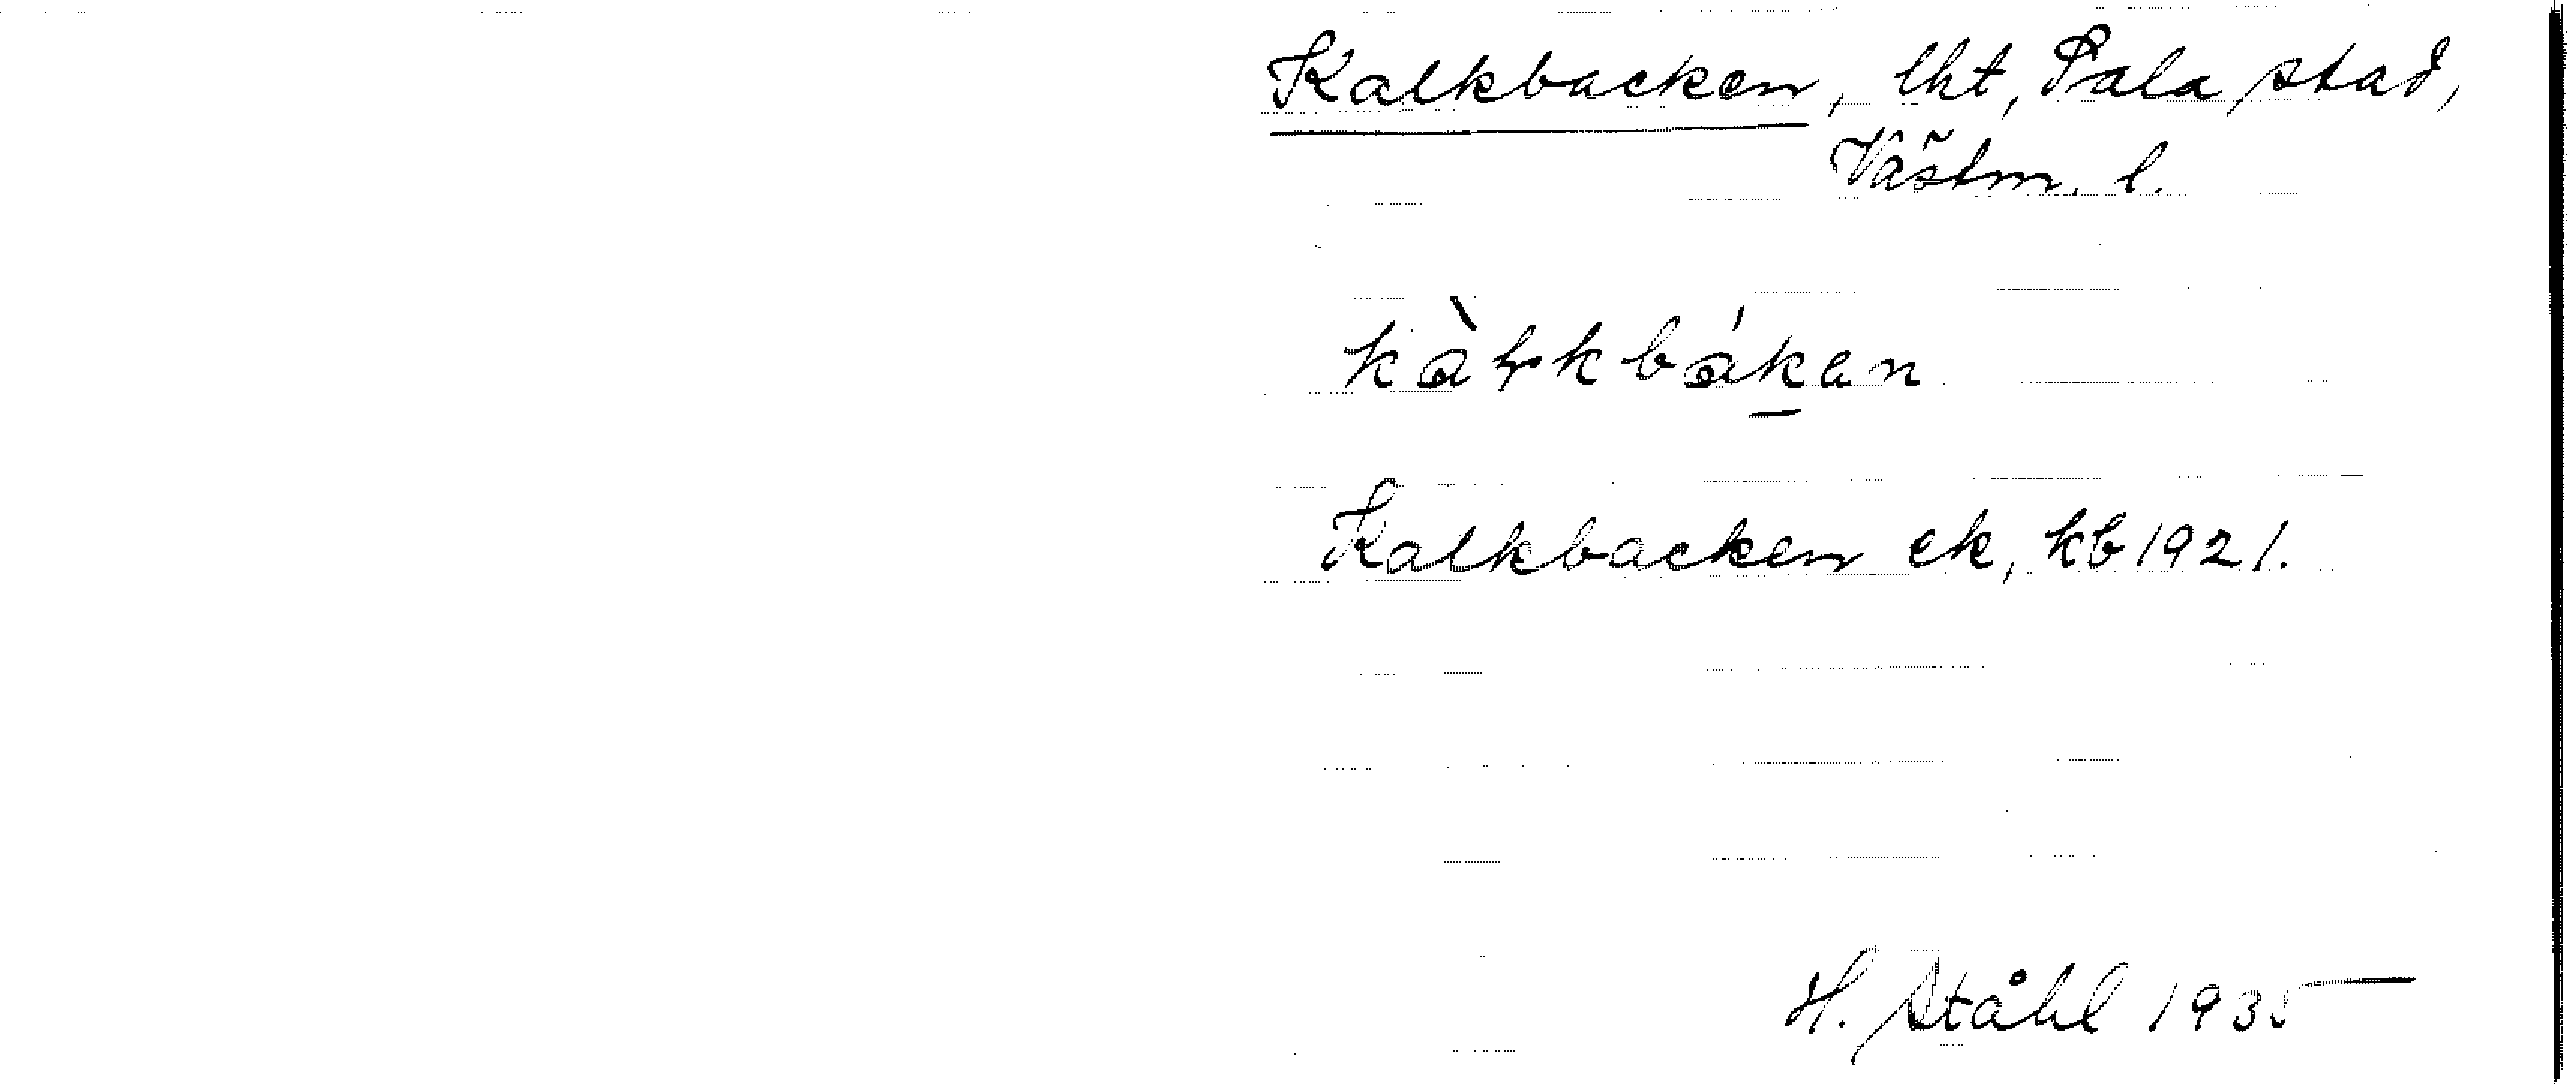 Kalkbacken, lht, Sala stad,
Västm. l.
Kalkbacken ek, kb 1921.
H. Ståhl 1935